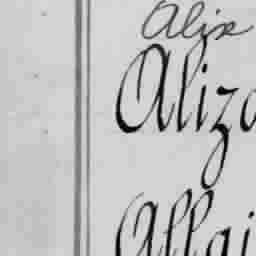 Alix
Alizo
Allai